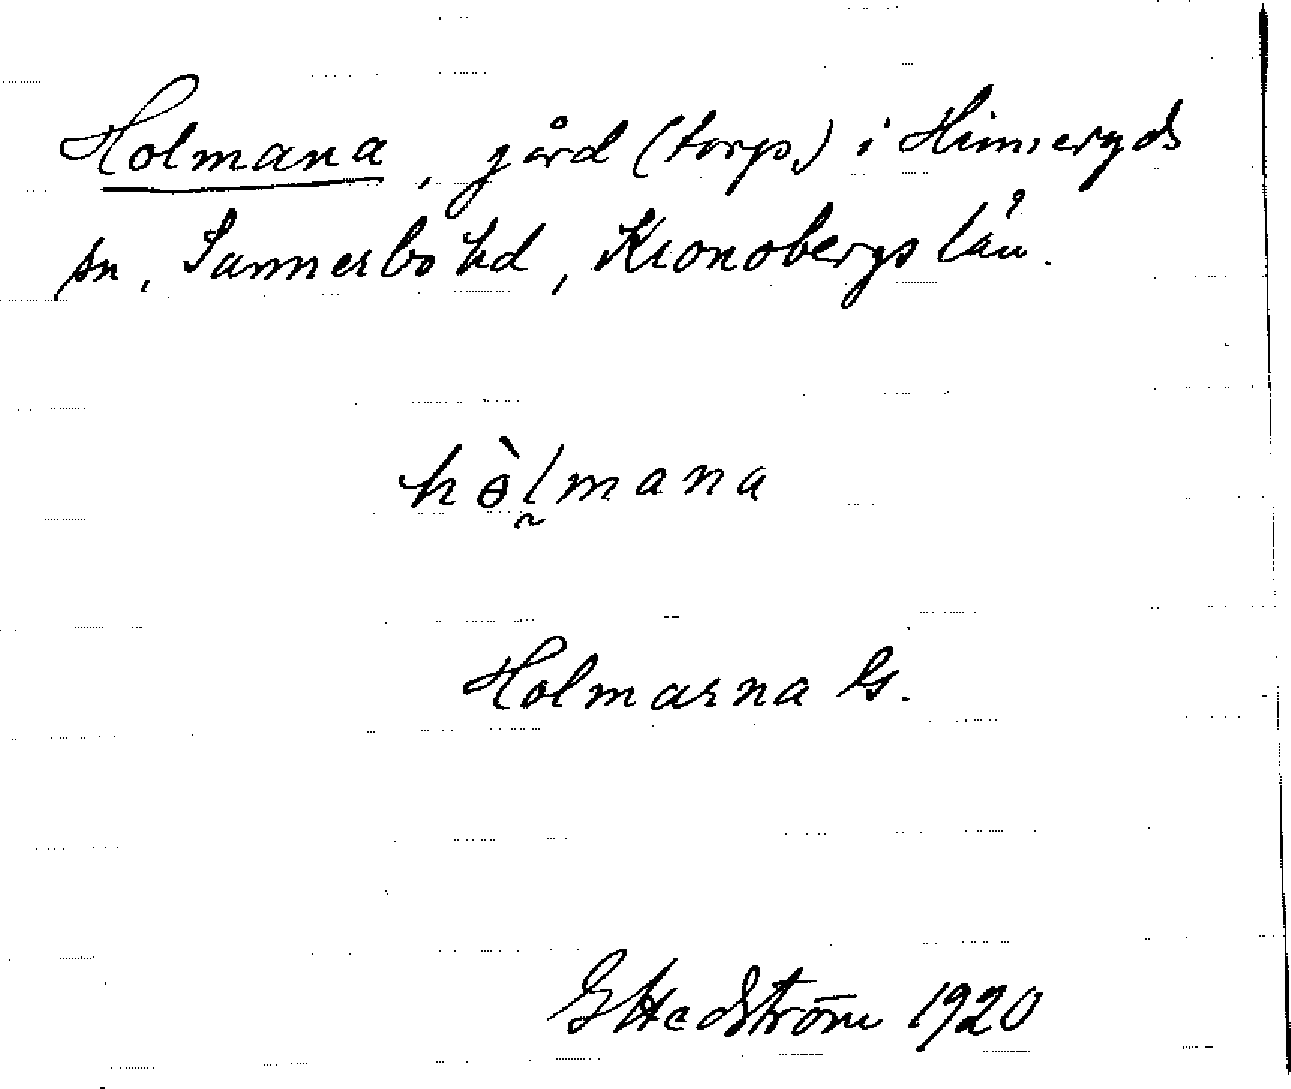 Holmana, gård (torp.) i Hinneryds
sn, Sunnerbo hd, Kronobergs län.
hɵ̀l̰mana
Holmarna Gs.
G Hedström 1920